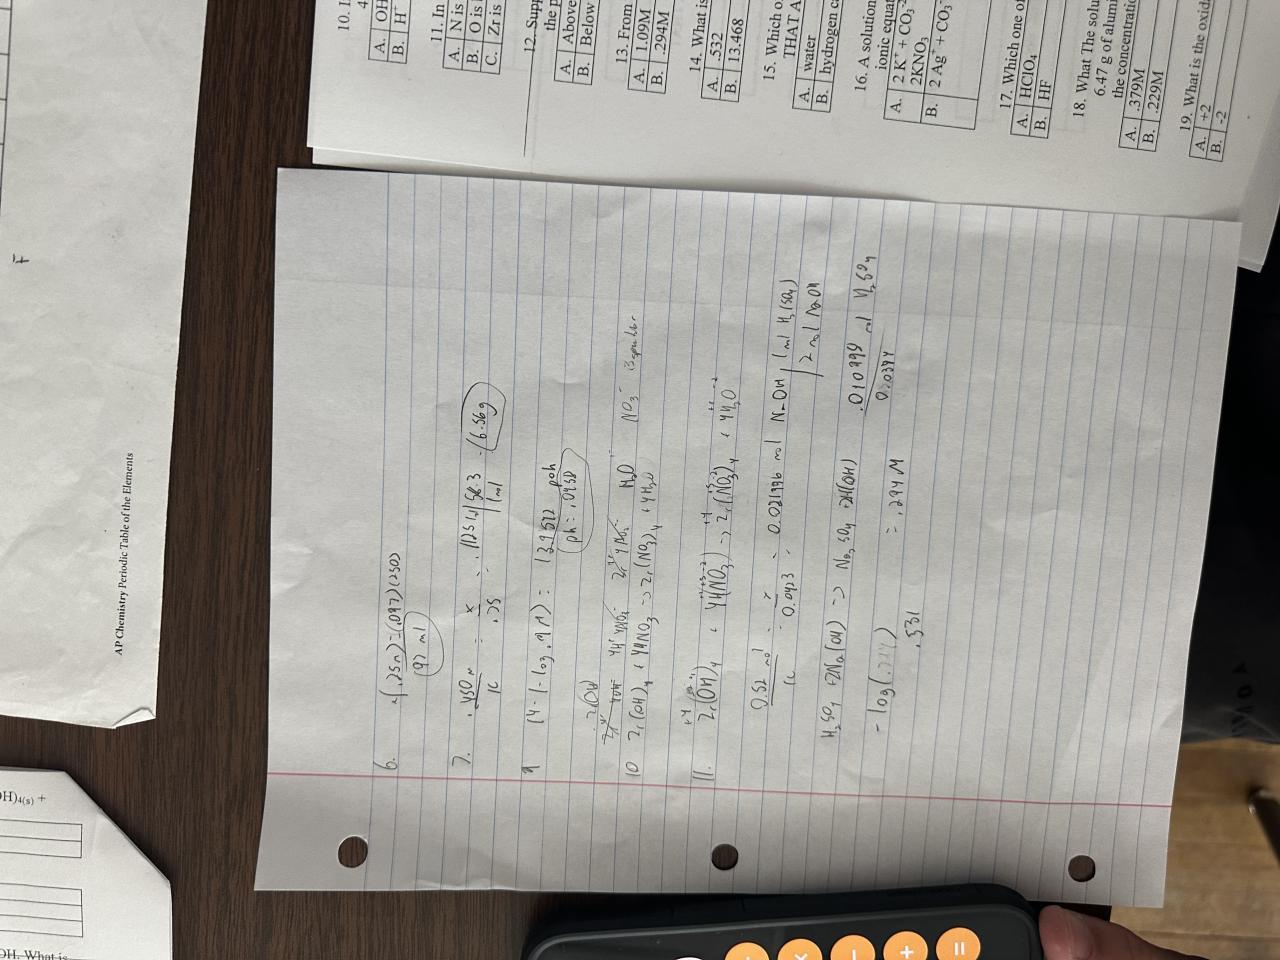 AP Chemistry Periodic Table of the Elements
H)4(s) +
OH. What is
6. (.25M)=(.097)(250)
97 ml
7. .450 M = x
1L .25
.1125 | 58.3
1 mol
6.56g
9 14-(-log .9M) = 13.9542 poh
ph = .0458
10 Zr(OH)4 + 4HNO3 -> Zr(NO3)4 + 4H2O
NO3-
H2O
11. Zr(OH)4 + 4H(NO3) -> Zr(NO3)4 + 4H2O
0.52 mol = x = 0.021996 mol NaOH | 1 mol H2(SO4)
1L 0.0423 2 mol NaOH
H2SO4 + 2Na(OH) -> Na2SO4 + 2H(OH) .010998 mol H2SO4
-log(.294) = .294 M
.531
10. I
A. OH
B. H+
11. In
A. N is
B. O is
C. Zr is
12. Supp
the p
A. Above
B. Below
13. From
A. 1.09M
B. .294M
14. What is
A. .532
B. 13.468
15. Which o
THAT A
A. water
B. hydrogen ca
16. A solution
ionic equat
A. 2 K+ + CO3-2
2KNO3
B. 2 Ag+ + CO3
17. Which one of
A. HClO4
B. HF
18. What The solu
6.47 g of alumi
the concentratio
A. .379M
B. .229M
19. What is the oxida
A. +2
B. -2